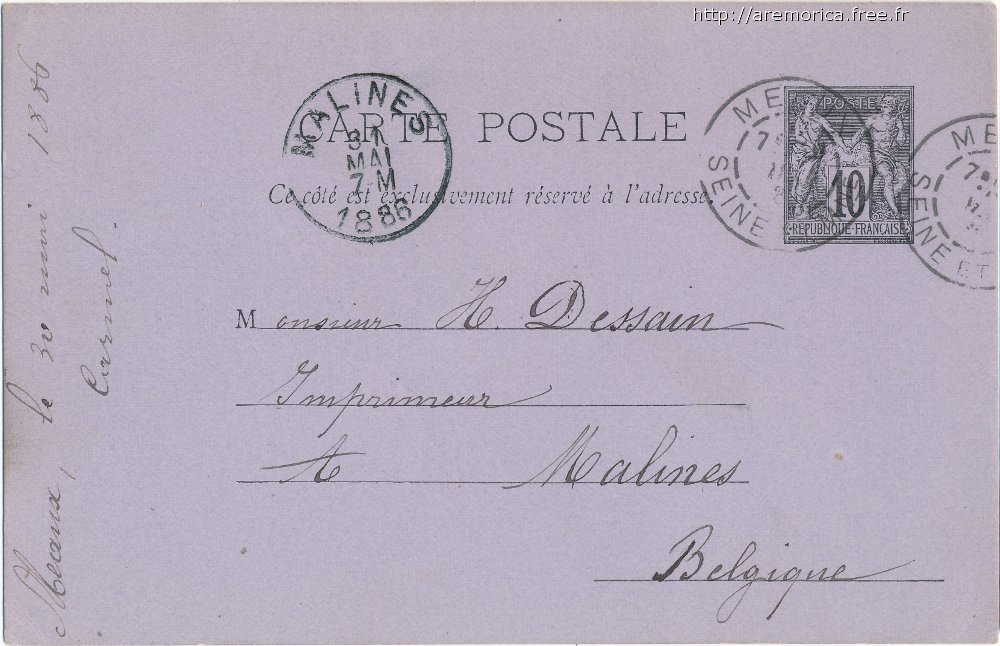 http://aremorica.free.fr
CARTE POSTALE
Ce côté est exclusivement réservé à l'adresse.
MALINES
31
MAI
7-M
1886
POSTE
10
REPUBLIQUE FRANÇAISE
ME
SEINE
ME
SEINE ET
Monsieur H. Dessain
Imprimeur
A Malines
Belgique
Meaux, le 30 mai 1886
Carmel.